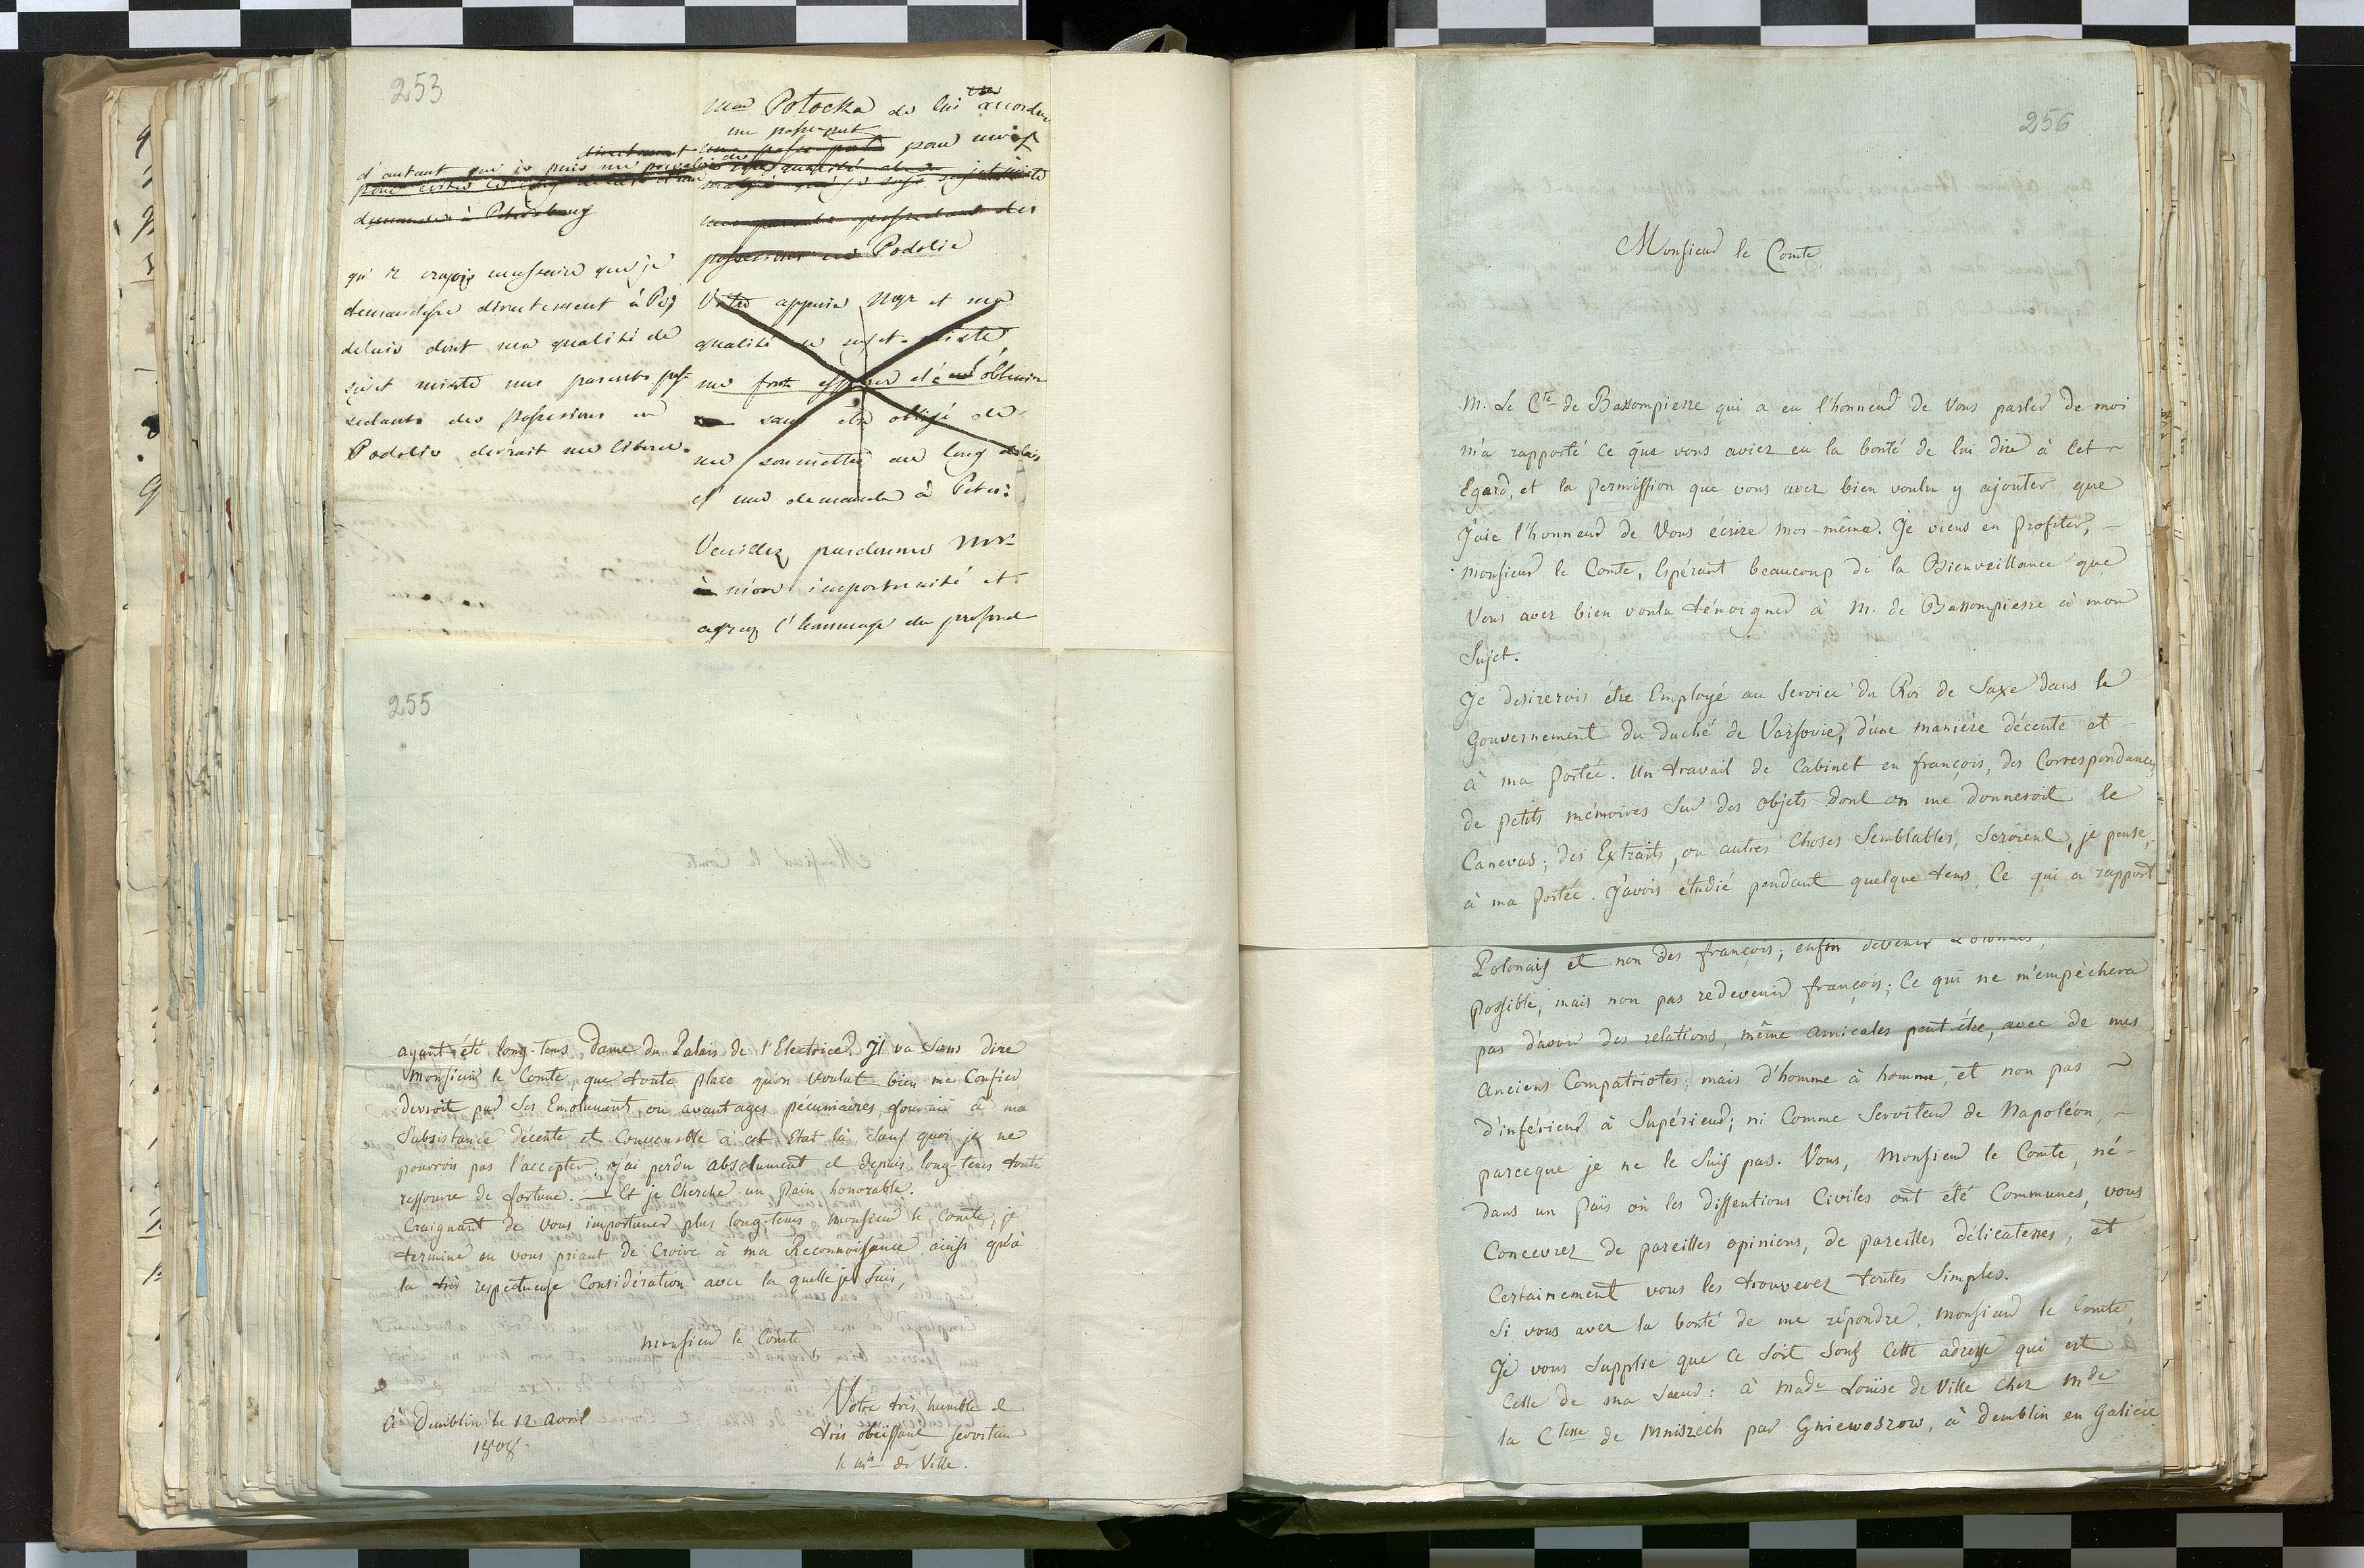 253
d'autant que je puis me
pour éviter les longs delais d'une
demander à Petersbourg
qu'il crayoit necessaire que je
demandasse directement à Pet
delais dont ma qualité de
sujet mixte mes parents pos-
sedants des possessions en
Podolie devrait me liberer.
Mad Potocka de lui accorder
un passe-port
une passe-porte pour moi
malgré que je suis sujet mixte
mes parents possedant des
possessions en Podolie
Votre appuie Mgr et ma
qualité de sujet mixte
me font esperer de l'obtenir
sans être obligé de
me soumettre au long delais
d'une demande à Peters:
Veuillez pardonner Mgr
à mon importunité et
agreez l'hommage du profond
255
ayant été long-tems Dame du Palais de l'Electrice. Il va sans dire
Monsieur le Comte que toute place qu'on voulut bien me Confier
devroit par ses Emoluments, ou avantages pécuniaires, fournir à ma
Subsistance décente et Convenable à cet Etat là, Sauf quoi je ne
pourrois pas l'accepter. j'ai perdu absolument et depuis long-tems toute
ressource de fortune. — Et je Cherche un Pain honorable.
Craignant de vous importuner plus long-tems Monsieur le Comte, je
termine en vous priant de Croire à ma Reconnoissance, ainsi qu'à
la très respectueuse Considération avec la quelle je Suis,
Monsieur le Comte
Votre très humble et
très obéissant serviteur
le Mis de Ville.
à Demblin, le 12 avril
1808.
256
Monsieur le Comte,
M. Le Cte de Bassompierre qui a eu l'honneur de Vous parler de moi
m'a rapporté Ce que vous aviez eu la bonté de lui dire à Cet
Egard, et la Permission que vous avez bien voulu y ajouter, que
J'aie l'honneur de Vous écrire moi-même. Je viens en Profiter, –
Monsieur le Comte, Espérant beaucoup de la Bienveillance que
Vous avez bien voulu témoigner à M. de Bassompierre à mon
Sujet.
Je desirerois être Employé au Service du Roi de Saxe dans le
Gouvernement du Duché de Varsovie, d'une maniére décente et
à ma Portée. Un travail de Cabinet en françois, des Correspondances
de petits mémoires Sur des objets dont on me donneroit le
Canevas; des Extraits, ou autres Choses Semblables, Seroient, je pense,
à ma Portée. J'avois étudié pendant quelque tems, Ce qui a rapport
Polonais et non des françois; enfin devenir Polonnois,
Possible; mais non pas redevenir françois; Ce qui ne m'empêchera
pas d'avoir des relations, même amicales peut-être, avec de mes
anciens Compatriotes; mais d'homme à homme, et non pas
d'inférieur à Supérieur; ni Comme Serviteur de Napoléon, –
parceque je ne le Suis pas. Vous, Monsieur le Comte, né –
dans un Païs où les dissentions Civiles ont été Communes, vous
Concevrez de pareilles opinions, de pareilles délicatesses, et
Certainement vous les trouverez toutes Simples.
Si vous avez la bonté de me répondre, Monsieur le Comte,
Je vous Supplie que Ce Soit Sous Cette adresse qui est
Celle de ma Sœur: à Made Louïse de Ville Chez Mde
la Ctesse de Mniszech par Gniewoszow, à Demblin en Galicie